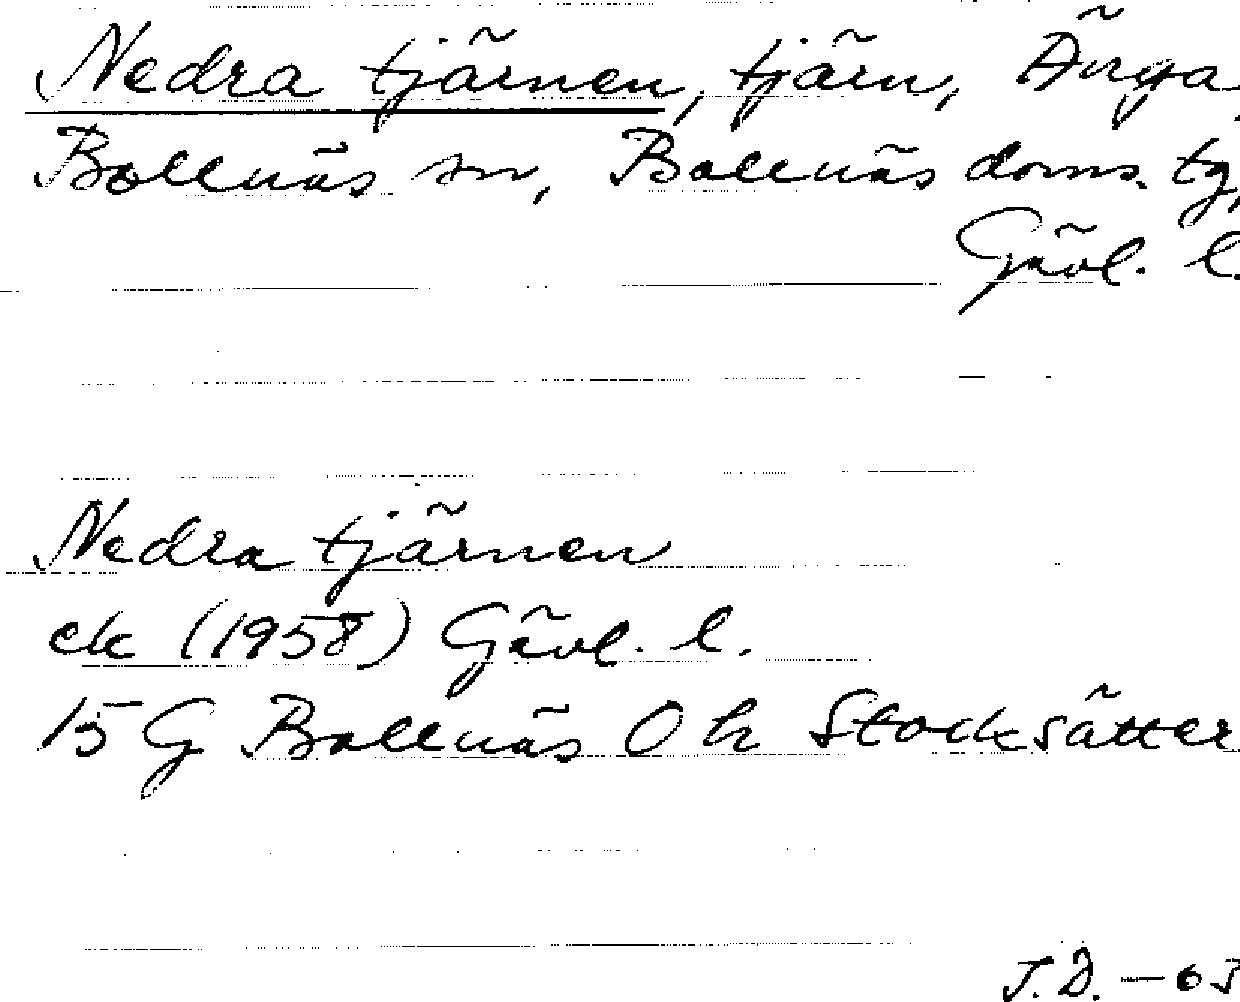 Nedra tjärnen, tjärn, Änga,
Bollnäs sn, Bollnäs doms. tg,
Gävl. l.
Nedra tjärnen
ek (1958) Gävl. l.
15 G Bollnäs 0 h Stocksätter
J.D. –63